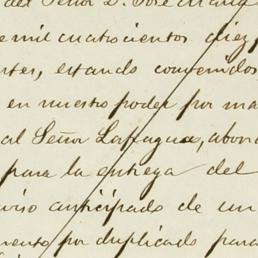 del Señor D. José María
mil cuatrocientos diez
estando convenidos
en nuestro poder por ma
al Señor Lafragua, abon
para la entrega del
viso anticipado de un
mento por duplicado para